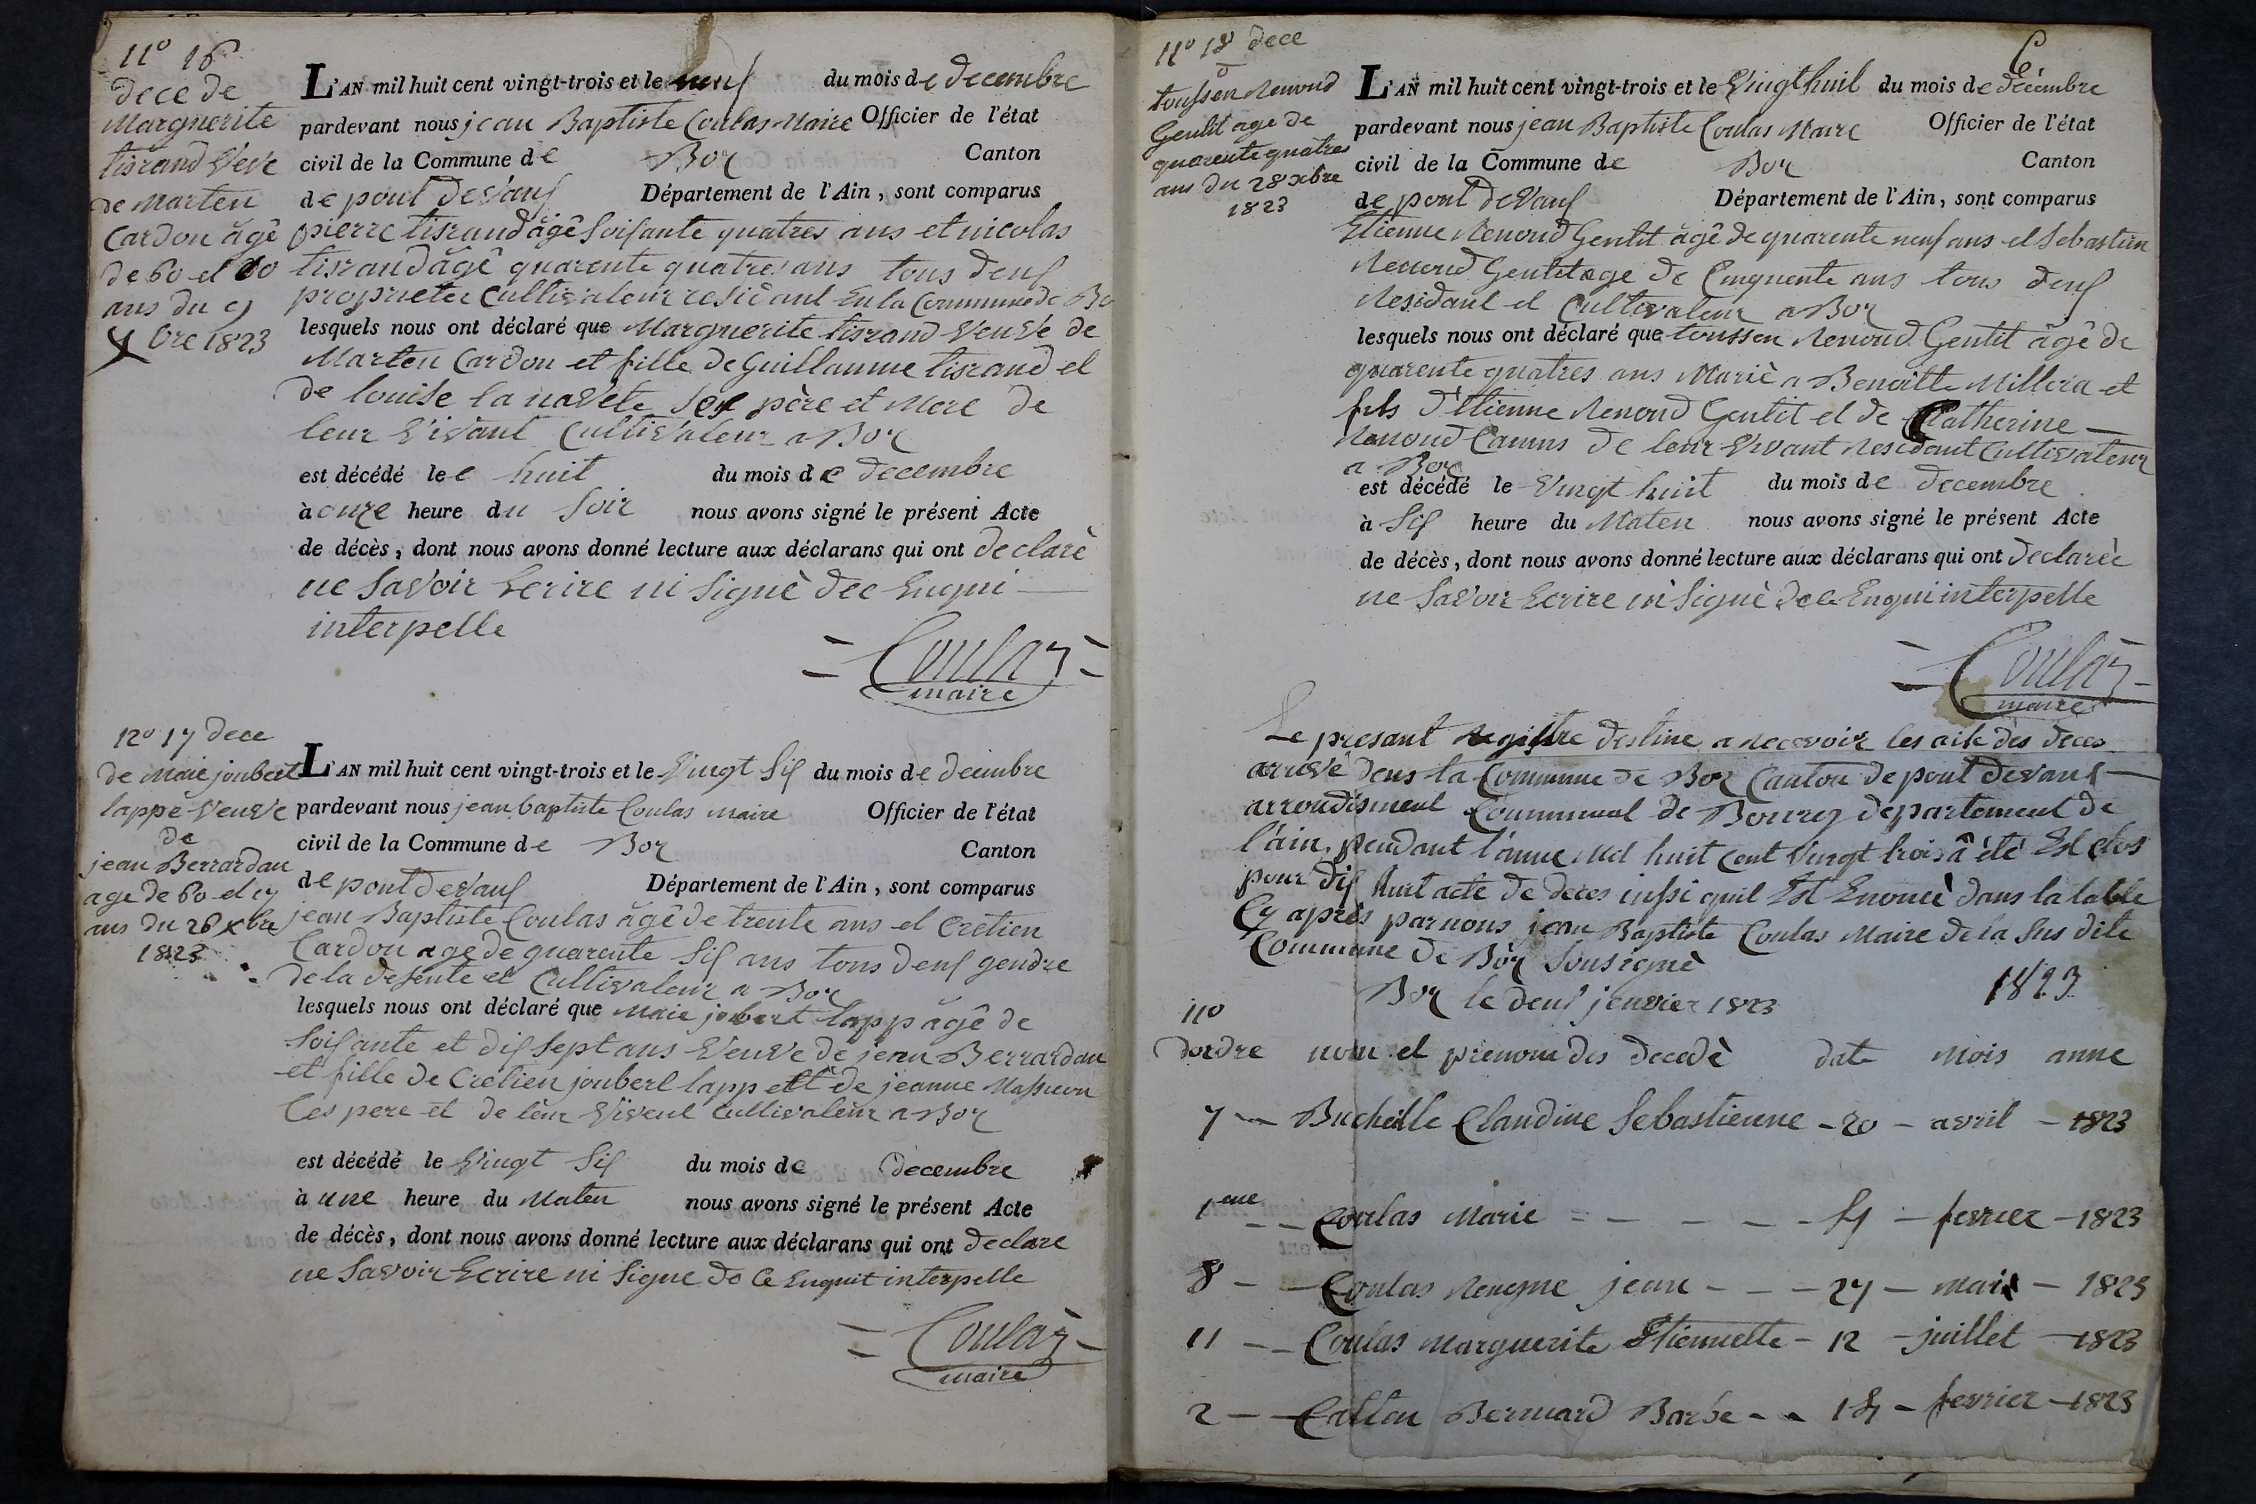 n° 16
dece de
Marguerite
tisrand Veve
de Marten
Cardon âgê
de 60 et 10
ans du 9
Xbre 1823
L'AN mil huit cent vingt-trois et le neuf du mois de decembre
pardevant nous jean Baptiste Coulas Maire Officier de l'état
civil de la Commune de Boz Canton
de pont devaux Département de l'Ain, sont comparus
pierre tisrand âgê soisante quatres ans et nicolas
tisrand âgê quarente quatres ans tous deux
proprieter Cultivateur residant En la Commune de Bo
lesquels nous ont déclaré que Marguerite tisrand Veuve de
Marten Cardon et fille de Guillaume tisrand et
de louise la navete ses père et Mere de
leur vivant Cultivateur a Boz
est décédé le huit du mois de decembre
à onze heure du soir nous avons signé le présent Acte
de décès, dont nous avons donné lecture aux déclarans qui ont declarè
ne savoir Ecrire ni signè dec Enqui
interpelle
Coulas
maire
n° 17 dece
de Maie joubert
lappe Veuve
de
jean Berrardan
age de 60 et 17
ans du 26 xbre
1823
L'AN mil huit cent vingt-trois et le Vingt six du mois de decimbre
pardevant nous jean baptiste Coulas maire Officier de l'état
civil de la Commune de Boz Canton
de pont devaux Département de l'Ain, sont comparus
jean Baptiste Coulas âgê de trente ans et Cretien
Cardon age de quarente six ans tous deux gendre
de la defente et Cultivateur a Boz
lesquels nous ont déclaré que Maie joubert lapp âgê de
soisante et dix sept ans Veuve de jean Berrardan
et fille de Cretien joubert lapp et de jeanne Massucon
Ces pere et de leur Viveut Cultivateur a Boz
est décédé le Vingt six du mois de decembre
à une heure du Maten nous avons signé le présent Acte
de décès, dont nous avons donné lecture aux déclarans qui ont declare
ne savoir Ecrire ni signe de Ce Enquit interpelle
Coulas
maire
6
n° 18 dece
toussen Renoud
Gentit age de
quarente quatres
ans du 28 xbre
1823
L'AN mil huit cent vingt-trois et le Vingt huit du mois de decembre
pardevant nous jean Baptiste Coulas Maire Officier de l'état
civil de la Commune de Boz Canton
de pont devaux Département de l'Ain, sont comparus
Etienne Renoud Gentit âgê de quarente neuf ans et Sebastien
Renoud Gentit age de Cinquente ans tous deux
Residant et Cultivateur a Boz
lesquels nous ont déclaré que toussen Renoud Gentit âgê de
quarente quatres ans Mariè a Benoitte Millera et
fils d'Etienne Renoud Gentit et de Catherine
Renoud Camus de leur Vivant Residant Cultivateur
a Boz
est décédé le Vingt huit du mois de decembre
à six heure du Maten nous avons signé le présent Acte
de décès, dont nous avons donné lecture aux déclarans qui ont declarée
ne savoir Ecrire ni signè de ce Enqui interpelle
Coulas
maire
Le presant Registre destine a recevoir les acte dès deces
arrivé dens la Commune de Boz Canton de pont devaux
arrondisment Communal de Bourg departement de
l'ain pendant l'anne Mil huit Cent Vingt trois â été Est clos
pour dix huit acte de deces inssi quil Est Enoncè dans la table
Cy après par nous jean Baptiste Coulas Maire de la sus dite
Commune de Boz sousignè
Boz le deux jenvier 1823
1823
n°
dordre nom et prenom des decedè date mois anne
7 Bucheille Claudine Sebastienne - 20 - avril - 1823
1eme Coulas Marie - - - - 4 - fevrier - 1823
8 - Coulas Reneyme jean - - - 27 - Mai - 1823
11 - - Coulas Marguerite Etiennette - 12 - juillet - 1823
2 - Catton Bernuard Barbe - - 14 - fevrier - 1823